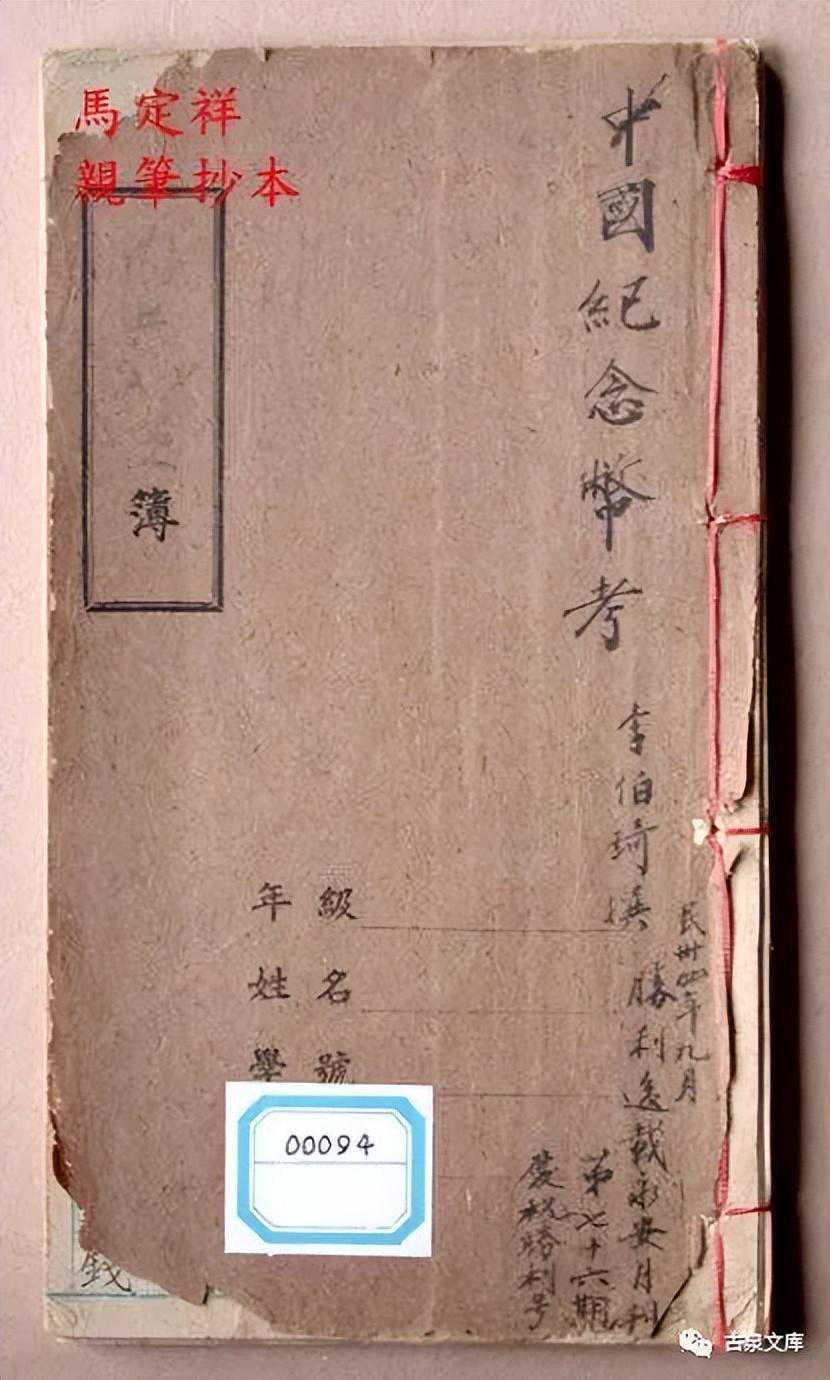 馬定祥
親筆抄本
中國紀念幣考
李伯琦撰
民卅四年九月
勝利逸載永安月刊
第七十六期
慶祝勝利号
簿
年級
姓名
學號
00094
錢
古泉文库